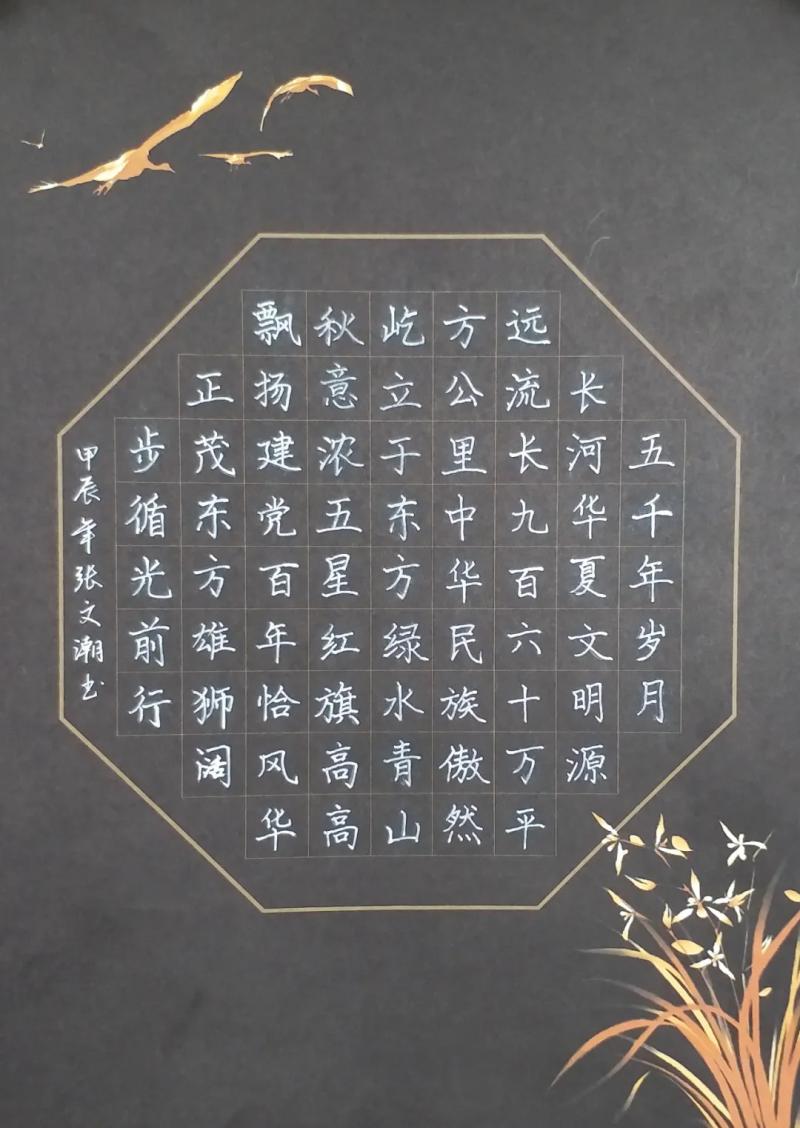 五千年岁月
长河华夏文明源
远流长九百六十万平
方公里中华民族傲然
屹立于东方绿水青山
秋意浓五星红旗高高
飘扬建党百年恰风华
正茂东方雄狮阔
步循光前行
甲辰年张文潮书